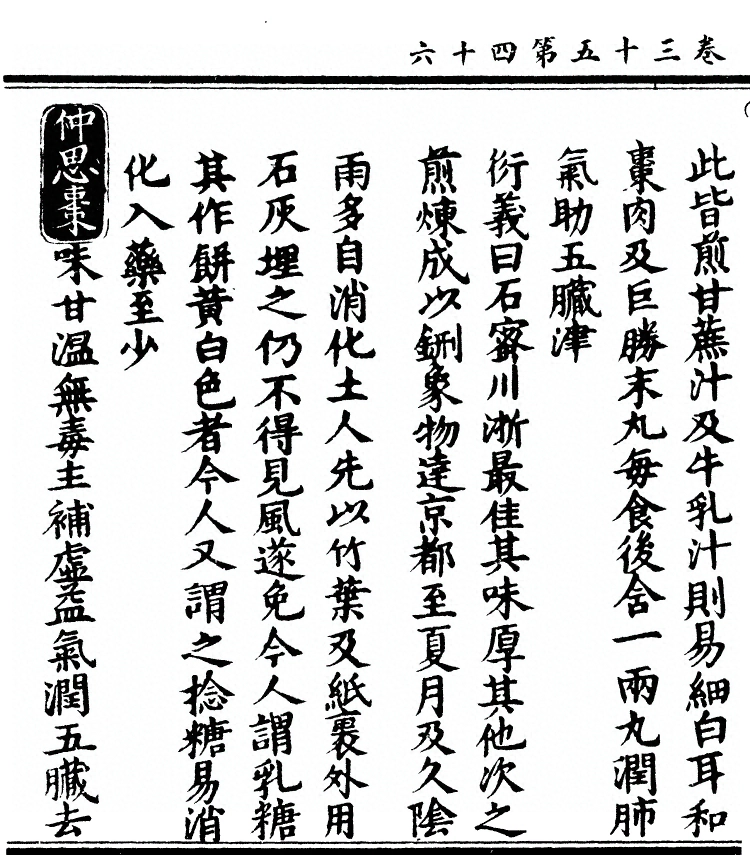 卷三十五第四十六
此皆煎甘蔗汁及牛乳汁則易細白耳和
棗肉及巨勝末丸每食後含一兩丸潤肺
氣助五臟津
衍義曰石蜜川浙最佳其味厚其他次之
煎煉成以鉶象物達京都至夏月及久陰
雨多自消化土人先以竹葉及紙裹外用
石灰埋之仍不得見風遂免今人謂乳糖
其作餅黃白色者今人又謂之捻糖易消
化入藥至少
仲思棗味甘溫無毒主補虛益氣潤五臟去